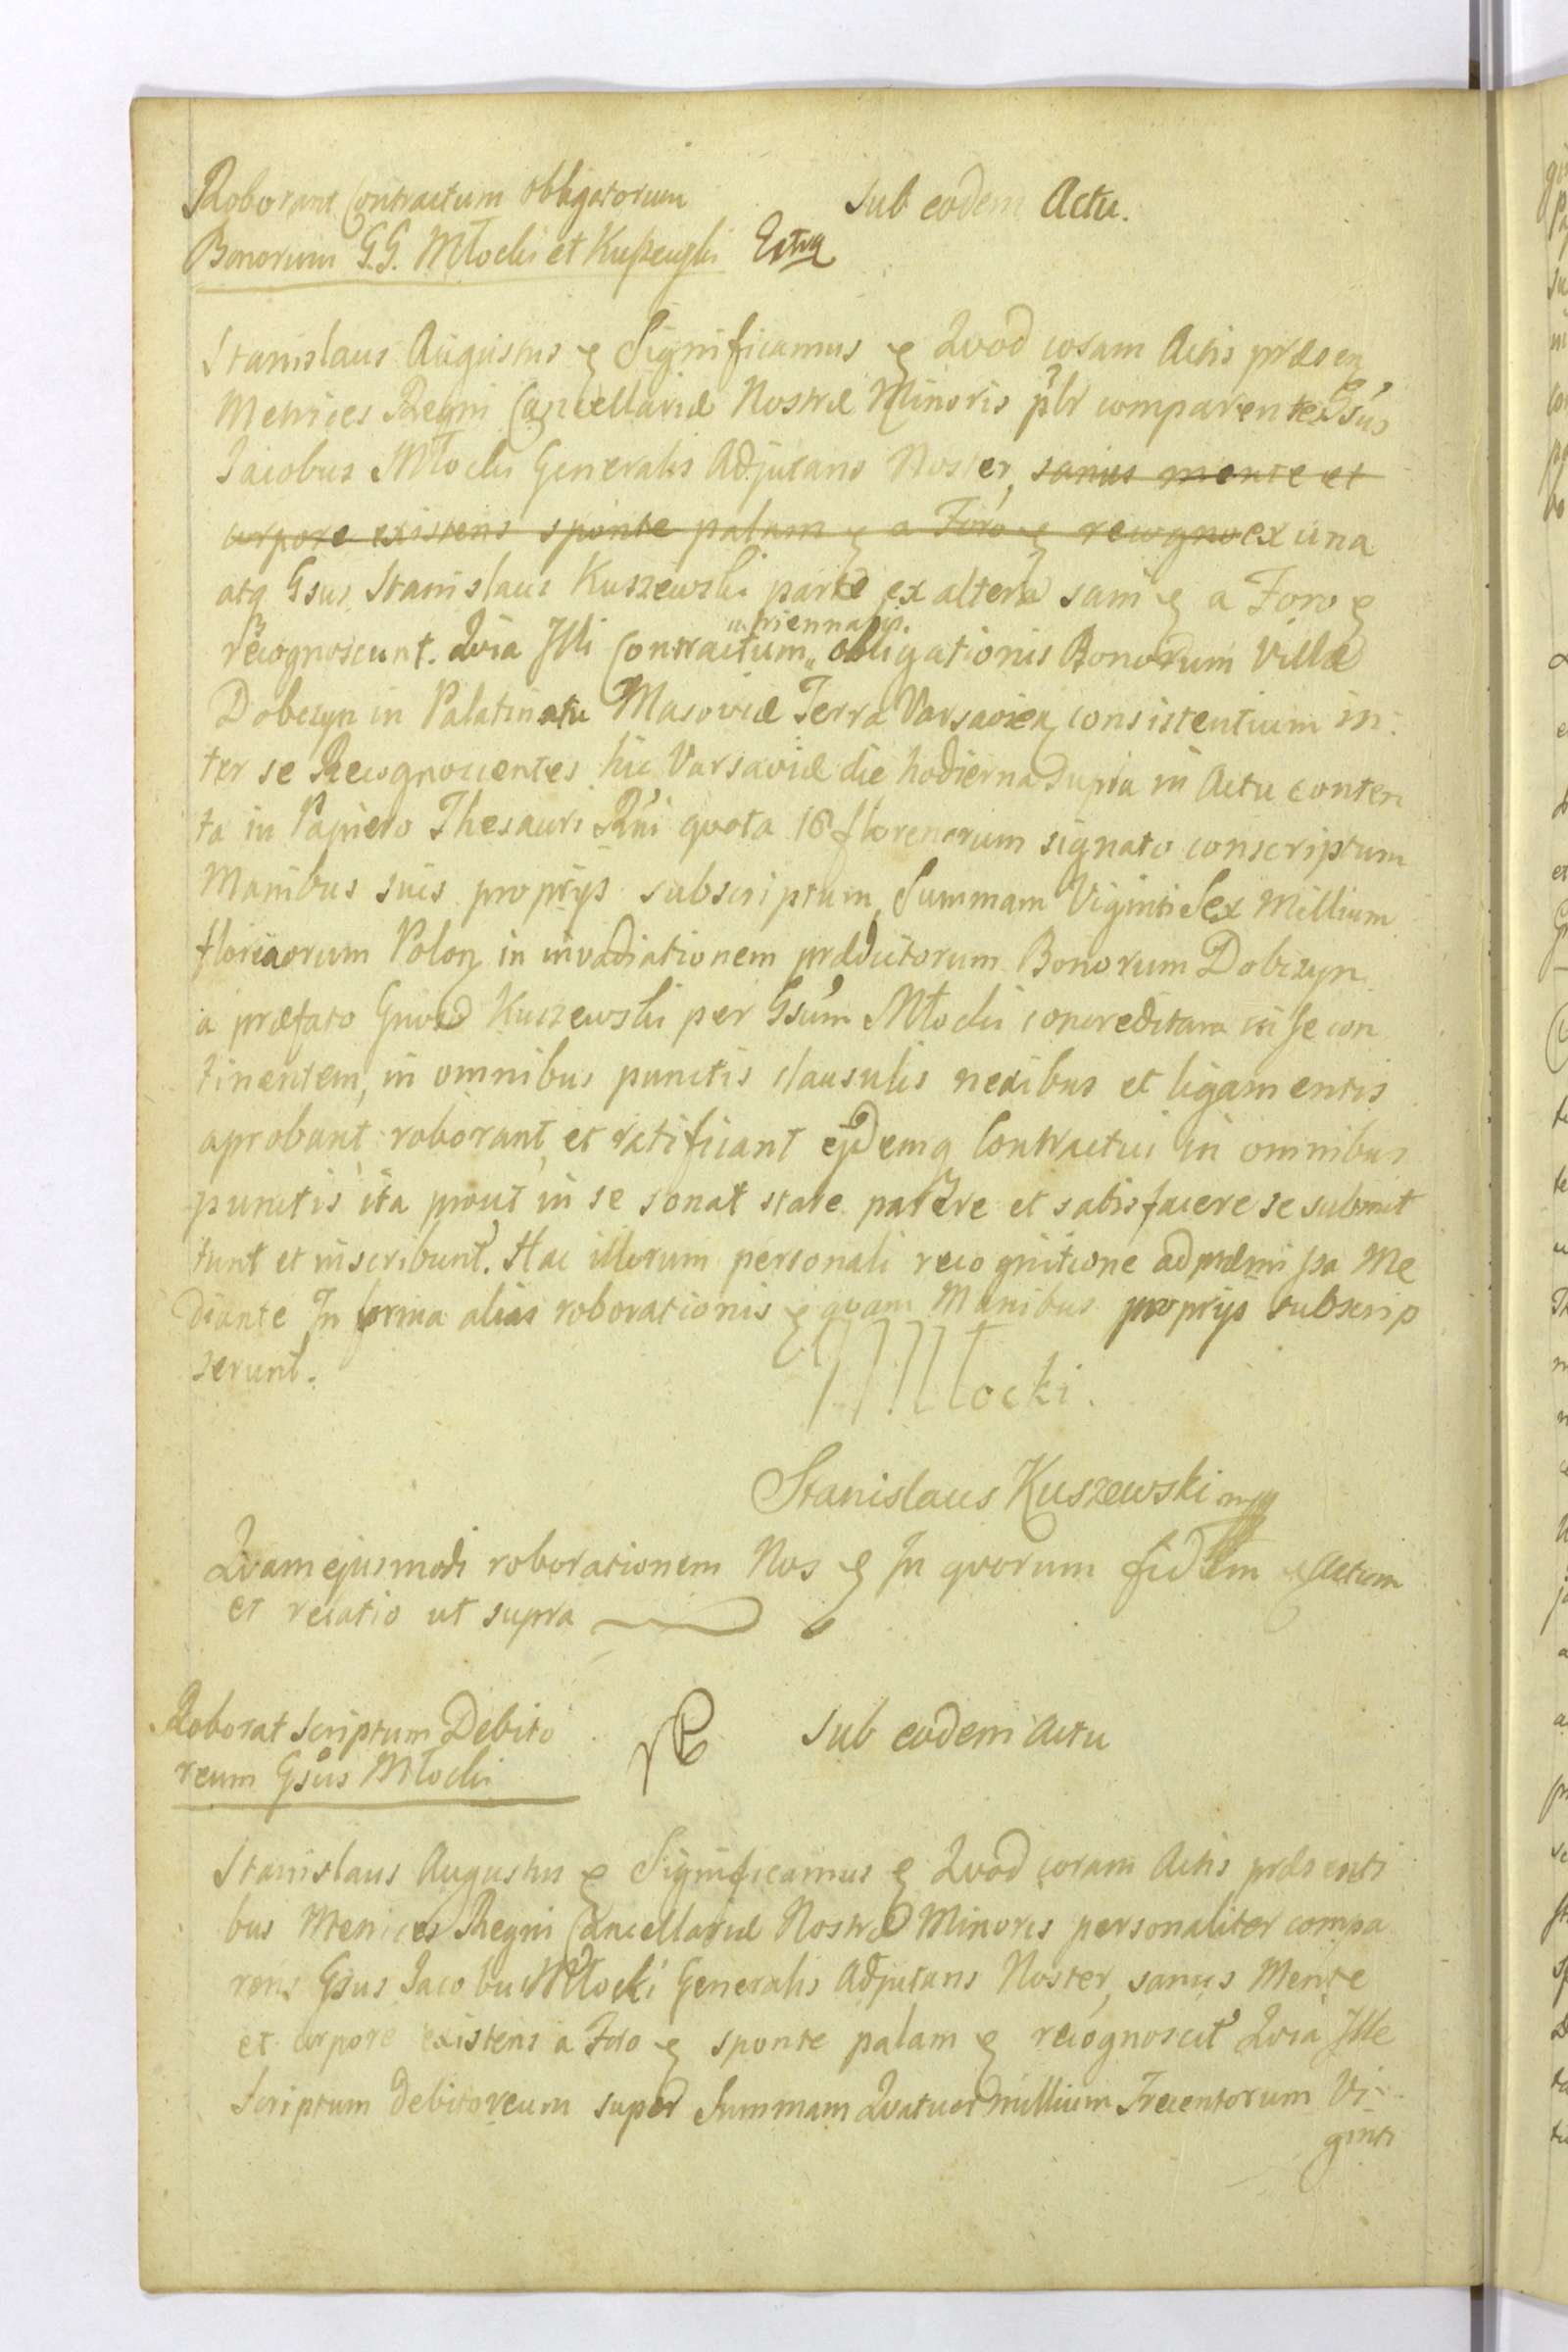 Roborant Contractum obligatorium
Bonorum G.G. Młocki et Kuszewski Extra
Sub eodem Actu.
Stanislaus Augustus &c Significamus &c Quod coram Actis præsen
Metrices Regni Cancellariæ Nostræ Minoris plr comparentes Gsus
Jacobus Młocki Generalis Adjutans Noster, sanus mente et
corpore existens sponte palam &c a Foro &c recogno ex una
atq Gsus Stanislaus Kuszewski parte ex altera sani &c a Foro &c
recognoscunt. Quia Illi Contractum triennalis obligationis Bonorum Villæ
Dobczyn in Palatinatu Masoviæ Terra Varsavien consistentium in:
ter se Recognoscentes hic Varsaviæ die hodierna supra in Actu conten
ta in Papiero Thesauri Rni quota 16 florenorum signato conscriptum
Manibus suis proprijs subscriptum, Summam Viginti Sex Millium
florenorum Polon in invadiationem prædictorum Bonorum Dobczyn
a præfato Gnoso Kuszewski per Gsum Młocki concreditam in se con
tinentem, in omnibus punctis clausulis nexibus et ligamentis
aprobant roborant, et ratificant ejdemq Contractui in omnibus
punctis ita prout in se sonat stare parere et satisfacere se submit
tunt et inscribunt. Hac illorum personali recognitione ad præmissa Me
diante In forma alias roborationis &c quam Manibus proprijs subscrip
serunt.
Młocki.
Stanislaus Kuszewski mpp
Quam ejusmodi roborationem Nos &c In quorum fidem &c Actum
et relatio ut supra
Roborat Scriptum Debito
reum Gsus Młocki
Sub eodem Actu
Stanislaus Augustus &c Significamus &c Quod coram Actis præsenti
bus Metrices Regni Cancellariæ Nostræ Minoris personaliter compa
rens Gsus Jacobus Młocki Generalis Adjutans Noster, sanus Mente
et corpore existens a Foro &c sponte palam &c recognoscit Quia Ille
Scriptum Debitoreum super Summam Quatuor millium Trecentorum Vi-
ginti